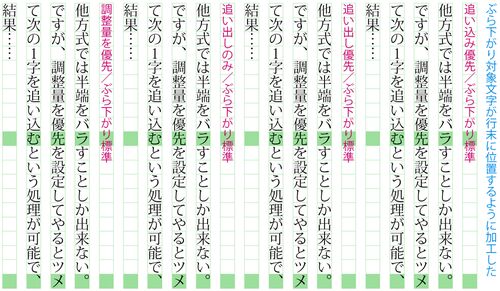 ぶら下がり対象文字が行末に位置するように加工した
追い込み優先／ぶら下がり標準
他方式では半端をバラすことしか出来ない。
ですが、調整量を優先を設定してやるとツメ
て次の1字を追い込むという処理が可能で、
結果……
追い出し優先／ぶら下がり標準
他方式では半端をバラすことしか出来ない。
ですが、調整量を優先を設定してやるとツメ
て次の1字を追い込むという処理が可能で、
結果……
追い出しのみ／ぶら下がり標準
他方式では半端をバラすことしか出来ない。
ですが、調整量を優先を設定してやるとツメ
て次の1字を追い込むという処理が可能で、
結果……
調整量を優先／ぶら下がり標準
他方式では半端をバラすことしか出来ない。
ですが、調整量を優先を設定してやるとツメ
て次の1字を追い込むという処理が可能で、
結果……